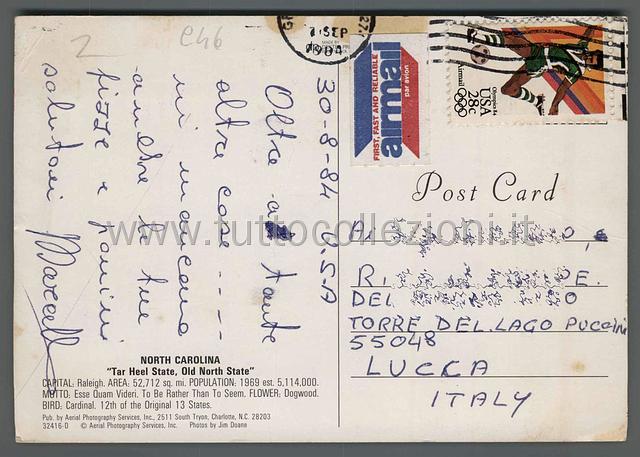 2
e46
7 SEP
1984
27
FIRST, FAST AND RELIABLE
airmail
par avion
Olympics 84
USA
28c
Airmail
30-8-84 U.S.A
Oltre a tante
altre cose ----
mi mancano
anche le tue
pizze e panini
salutoni Marcello
Post Card
www.tuttocollezioni.it
A.
R. E.
DEL O
TORRE DEL LAGO PUCCINI
55048
LUCCA
ITALY
NORTH CAROLINA
"Tar Heel State, Old North State"
CAPITAL: Raleigh. AREA: 52,712 sq. mi. POPULATION: 1969 est. 5,114,000.
MOTTO: Esse Quam Videri. To Be Rather Than To Seem. FLOWER: Dogwood.
BIRD: Cardinal. 12th of the Original 13 States.
Pub. by Aerial Photography Services, Inc., 2511 South Tryon, Charlotte, N.C. 28203
32416-D © Aerial Photography Services, Inc. Photos by Jim Doane